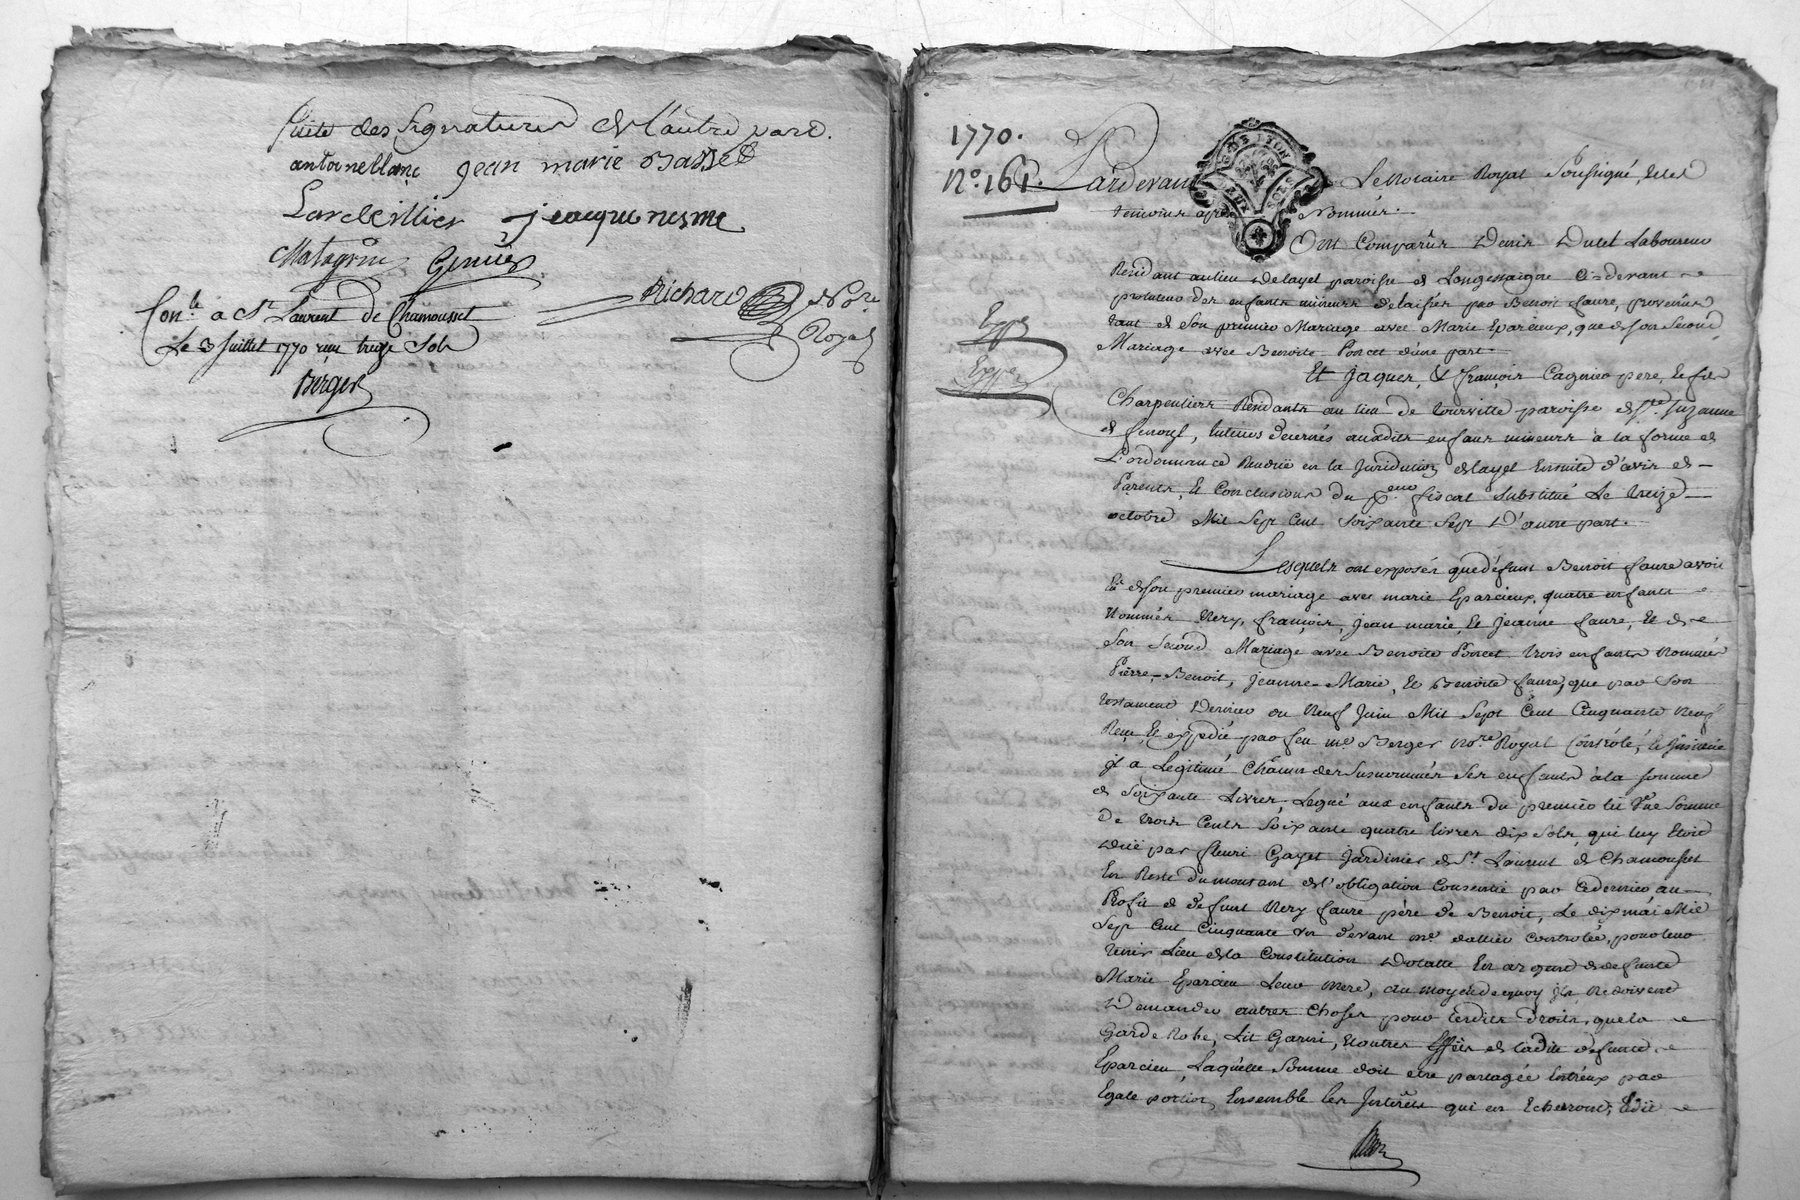 Suite des Signatures de l'autre part.
antoine blanc jean marie Basset
jacque nesme
Matagrin
Richard Nore
Royal
Con.lé à St Laurent de Chamousset
Le 3 Juillet 1770 reçu treize Sols
Berger
1770.
N.º 161.
Pardevant Le Notaire Royal Soussigné, & les
temoins aprés Nommés.
Ont Comparûs Denis Dulel Laboureur
Residant au lieu de layet paroisse de Longessaigne Cidevant
protuteur des enfants mineurs delaissés par Benoit faure, provenûs
tant de Son premier Mariage avec Marie Eparcieux, que de son Second
Mariage avec Benoite Poncet d'une part.
Expé
Expé
Et Jaques, & françois Cagnieu pere, & fils
Charpentiers Residants au lieu de tourville paroisse de Ste Suzanne
de , tuteurs decernés auxdits enfans mineurs à la forme de
L'ordonnance Renduë en la Juridiction de layet Ensuite d'avis de
Parents, & Conclusions du Preur fiscal Substitué Le treize
octobre Mil Sept Cent Soixante Sept D'autre part.
Lesquels ont exposés que défunt Benoit faure avoit
eû de son premier mariage avec marie Eparcieux, quatre enfants
Nommés Nery, françois, jean marie, & jeanne faure, & de
Son Second Mariage avec Benoite Poncet trois enfants Nommés
Pierre-Benoit, jeanne-Marie, & Benoite faure, que par Son
testament Dernier du Neuf Juin Mil Sept Cent Cinquante Neuf
Reçu, & expedié par feu me Berger Nore Royal Contrôlé, & Jnsinué
jl a Legitimé Châcun des Susnommés Ses enfants à la somme
de Soixante Livres, Legué aux enfants du premier lit Une Somme
De trois Cents Soixante quatre livres dix Sols, qui luy Etoit
Duë par fleuri Gayet Jardinier de St Laurent de Chamousset
En Reste du montant de l'obligation Consentie par Cedernier au
Profit de defunt Nery faure père de Benoit, Le dix mai Mil
Sept Cent Cinquante un devant me dallier Controlée, pour leur
tenir Lieu de la Constitution Dotalle En argent de defunte
Marie Eparcieu Leur mere, au moyen de quoy jls ne doivent
Demander autres Choses pour lesdits droits, que la
Garde Robe, Lit Garni, & autres Effêts de ladite defunte
Eparcieu, Laquelle Somme doit etre partagée Entr'eux par
Egale portion, Ensemble les Jnterêts qui en Echerront, Ledit